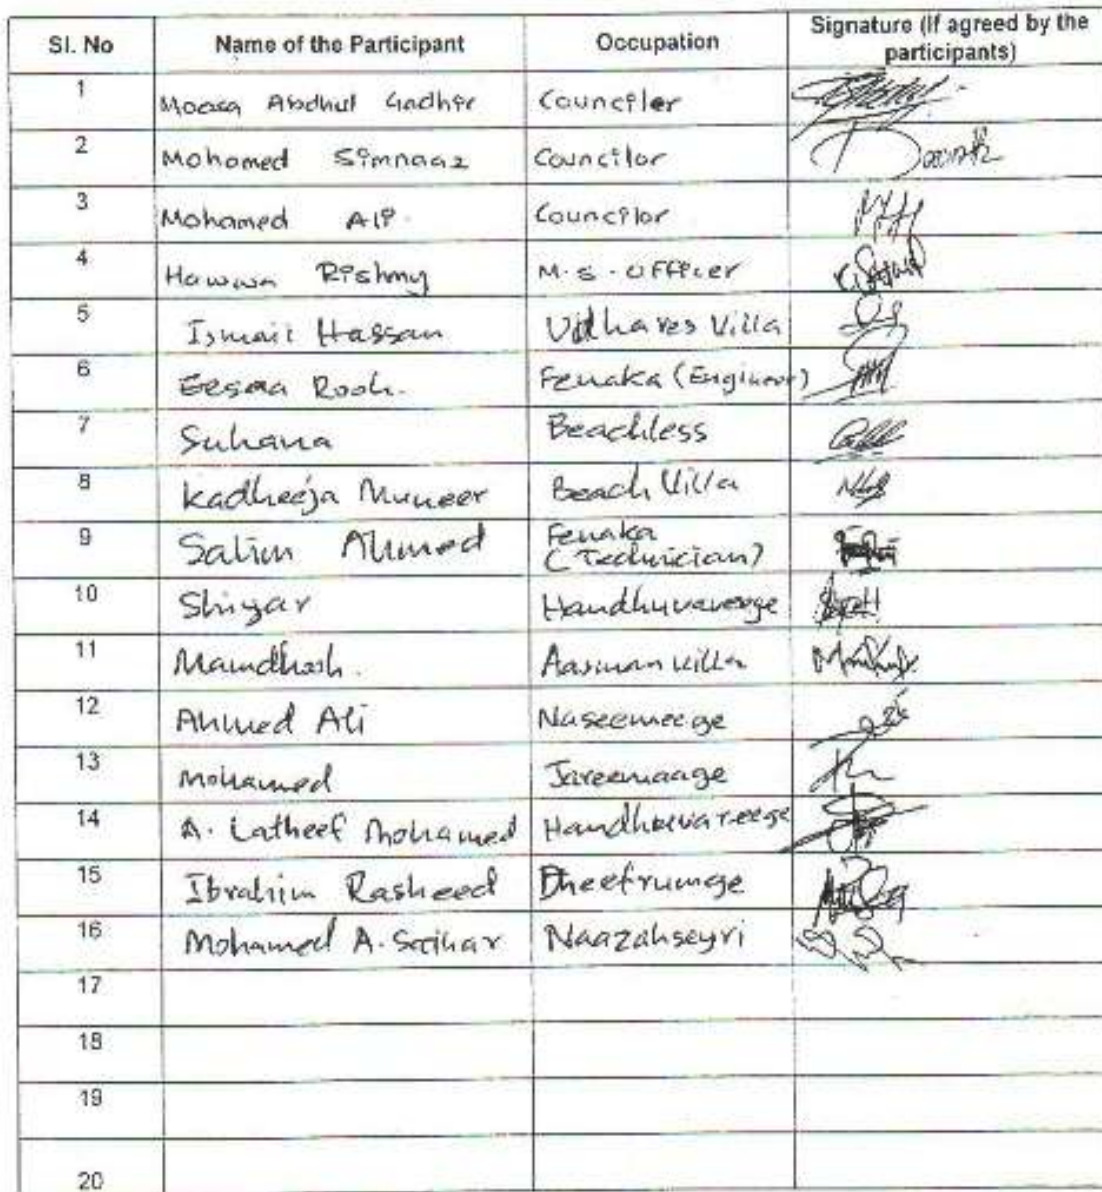 Sl. No Name of the Participant Occupation Signature (if agreed by the
participants)
1 Moosa Abdhul Gadhir Counciler
2 Mohamed Simnaaz Councilor
3 Mohamed Ali. Councilor
4 Hawwa Rishmy M.S. Officer
5 Ismail Hassan Villa
6 Eesaa Rooh. Fenaka (Engineer)
7 Suhana Beachless
8 Kadheeja Muneer Beach Villa
9 Salim Ahmed Fenaka
(Technician)
10 Shiyar
11 Mamdhooh. Aasman villa
12 Ahmed Ali Naseemeege
13 Mohamed Jareemaage
14 A. Latheef Mohamed Handhuvareege
15 Ibrahim Rasheed Dheefrumge
16 Mohamed A. Naazahseyri
17
18
19
20